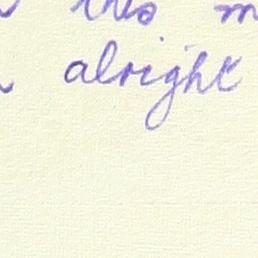 this
alright